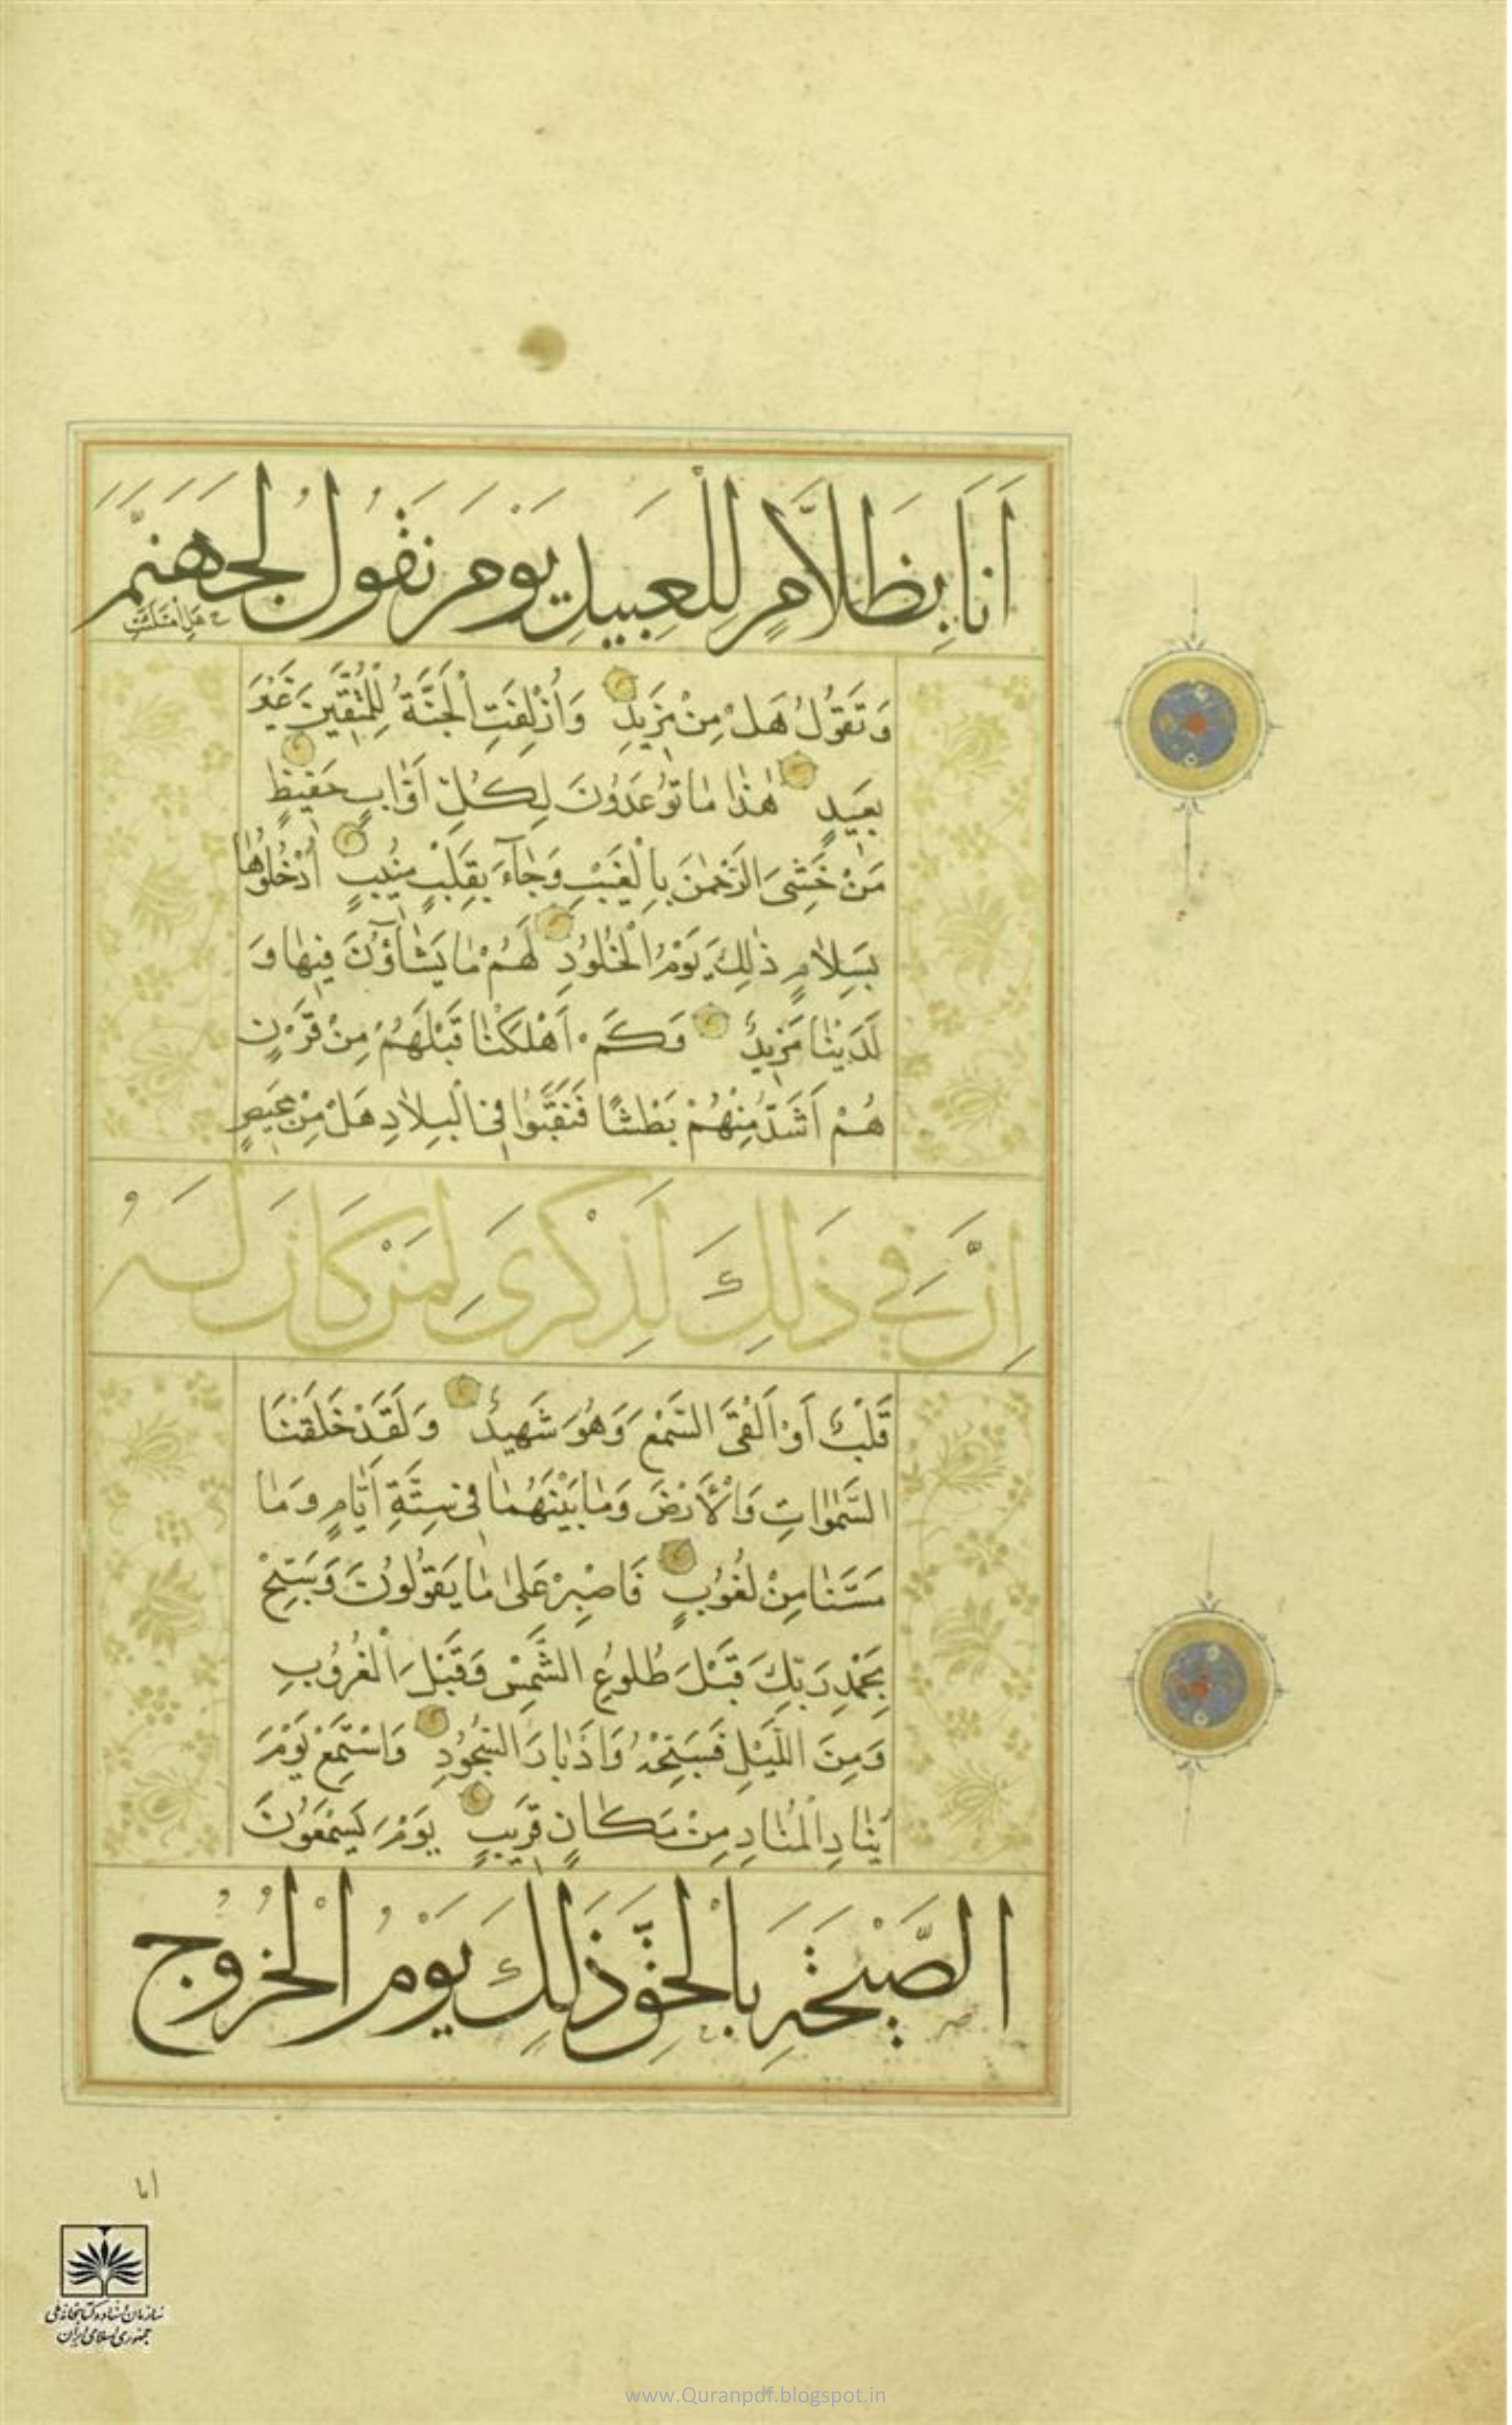 اَنَا بِظَلَّامٍ لِلْعَبِيدِ يَوْمَ نَقُولُ لِجَهَنَّمَ
هَلِ امْتَلَأْتِ
وَتَقُولُ هَلْ مِنْ مَزِيدٍ وَاُزْلِفَتِ الْجَنَّةُ لِلْمُتَّقِينَ غَيْرَ
بَعِيدٍ هٰذَا مَا تُوعَدُونَ لِكُلِّ اَوَّابٍ حَفِيظٍ
مَنْ خَشِيَ الرَّحْمٰنَ بِالْغَيْبِ وَجَآءَ بِقَلْبٍ مُنِيبٍ اُدْخُلُوهَا
بِسَلَامٍ ذٰلِكَ يَوْمُ الْخُلُودِ لَهُمْ مَا يَشَاؤُنَ فِيهَا وَ
لَدَيْنَا مَزِيدٌ وَكَمْ اَهْلَكْنَا قَبْلَهُمْ مِنْ قَرْنٍ
هُمْ اَشَدُّ مِنْهُمْ بَطْشًا فَنَقَّبُوا فِي الْبِلَادِ هَلْ مِنْ مَحِيصٍ
اِنَّ فِي ذَلِكَ لَذِكْرَى لِمَنْ كَانَ لَهُ
قَلْبٌ اَوْ اَلْقَى السَّمْعَ وَهُوَ شَهِيدٌ وَلَقَدْ خَلَقْنَا
السَّمٰوَاتِ وَالْأَرْضَ وَمَا بَيْنَهُمَا فِي سِتَّةِ اَيَّامٍ وَمَا
مَسَّنَا مِنْ لُغُوبٍ فَاصْبِرْ عَلٰى مَا يَقُولُونَ وَسَبِّحْ
بِحَمْدِ رَبِّكَ قَبْلَ طُلُوعِ الشَّمْسِ وَقَبْلَ الْغُرُوبِ
وَمِنَ اللَّيْلِ فَسَبِّحْهُ وَاَدْبَارَ السُّجُودِ وَاسْتَمِعْ يَوْمَ
يُنَادِ الْمُنَادِ مِنْ مَكَانٍ قَرِيبٍ يَوْمَ يَسْمَعُونَ
الصَّيْحَةَ بِالْحَقِّ ذَلِكَ يَوْمُ الْخُرُوجِ
سازمان اسناد و کتابخانه ملی
جمهوری اسلامی ایران
www.Quranpdf.blogspot.in